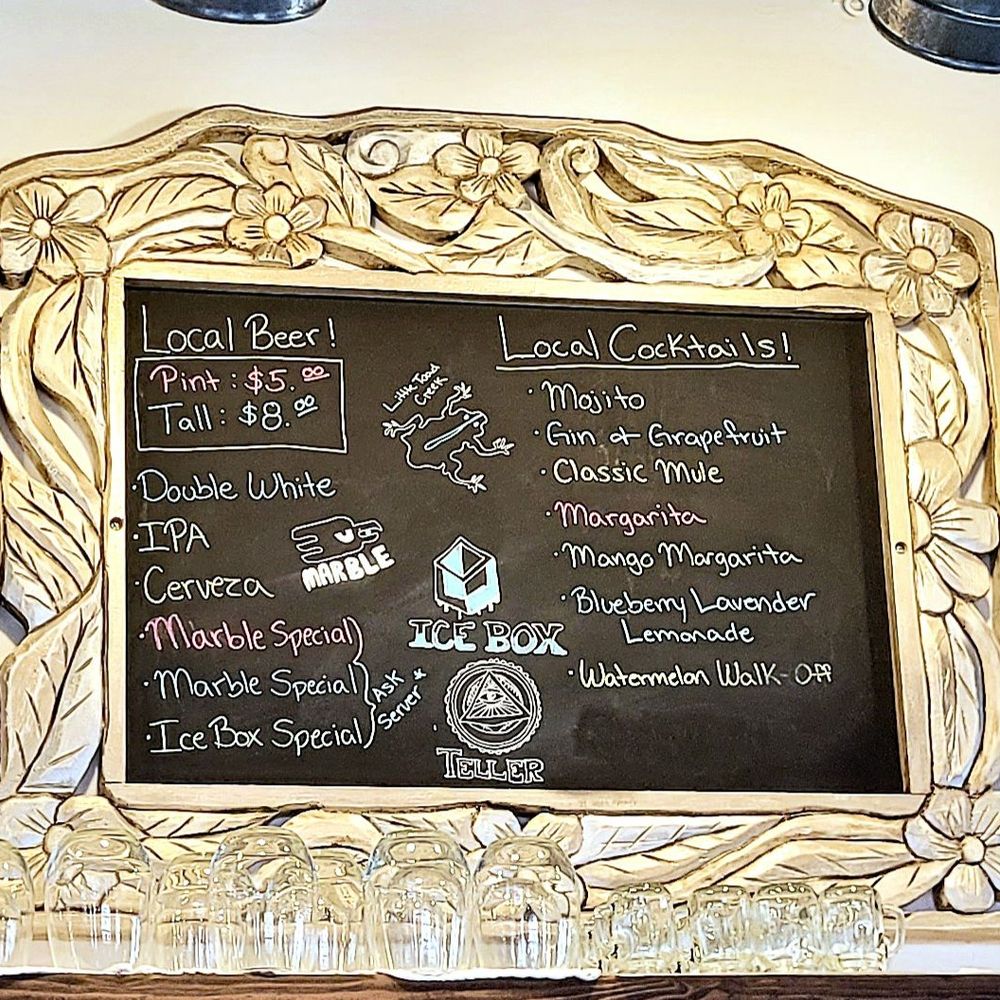 Local Beer!
Pint: $5.00
Tall: $8.00
·Double White
·IPA
·Cerveza
·Marble Special
·Marble Special
·Ice Box Special
Ask
Server *
Little Toad
Creek
MARBLE
ICE BOX
TELLER
Local Cocktails!
·Mojito
·Gin & Grapefruit
·Classic Mule
·Margarita
·Mango Margarita
·Blueberry Lavender
Lemonade
·Watermelon Walk-Off